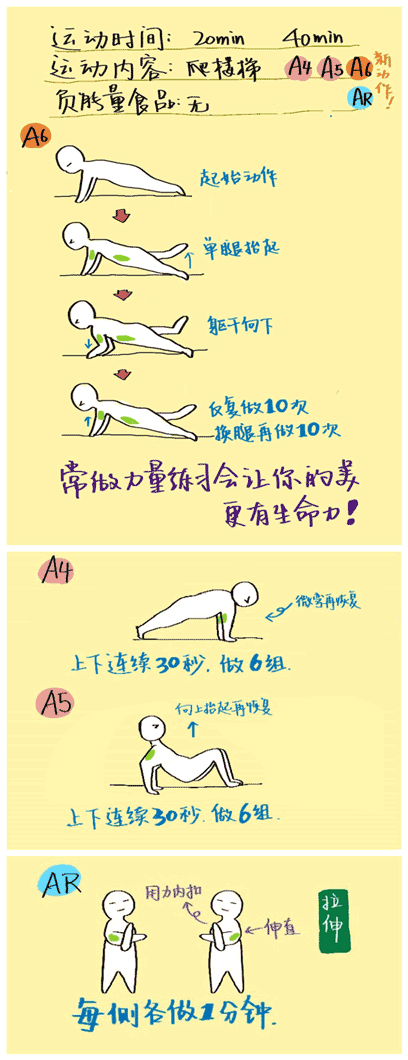 运动时间: 20min 40min
运动内容: 爬楼梯 A4 A5 A6 新动作!
负能量食品: 无 AR
A6
起始动作
单腿抬起
躯干向下
反复做10次
换腿再做10次
常做力量练习会让你的美
更有生命力!
A4
微弯再恢复
上下连续30秒.做6组.
A5
向上抬起再恢复
上下连续30秒.做6组.
AR
用力内扣
拉伸
伸直
每侧各做1分钟.